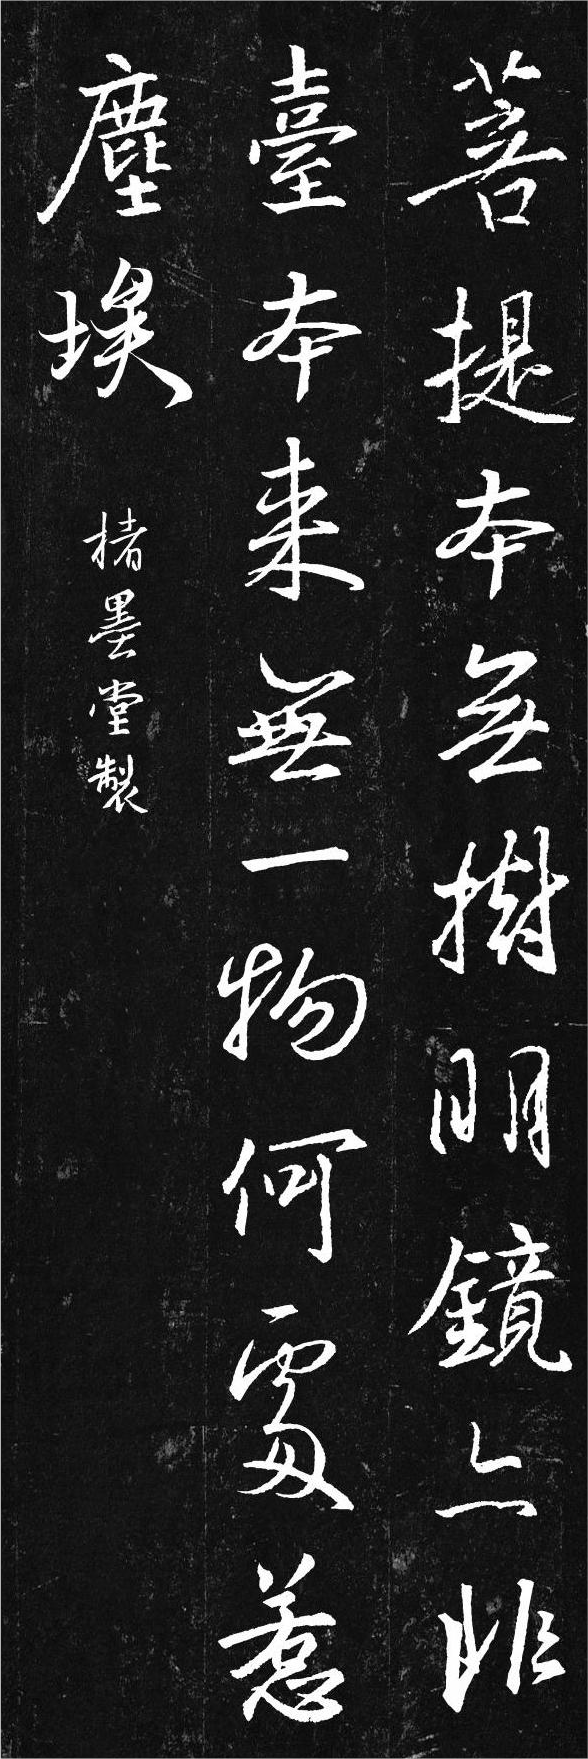 菩提本無樹明鏡亦非
臺本来無一物何處惹
塵埃
楮墨堂製